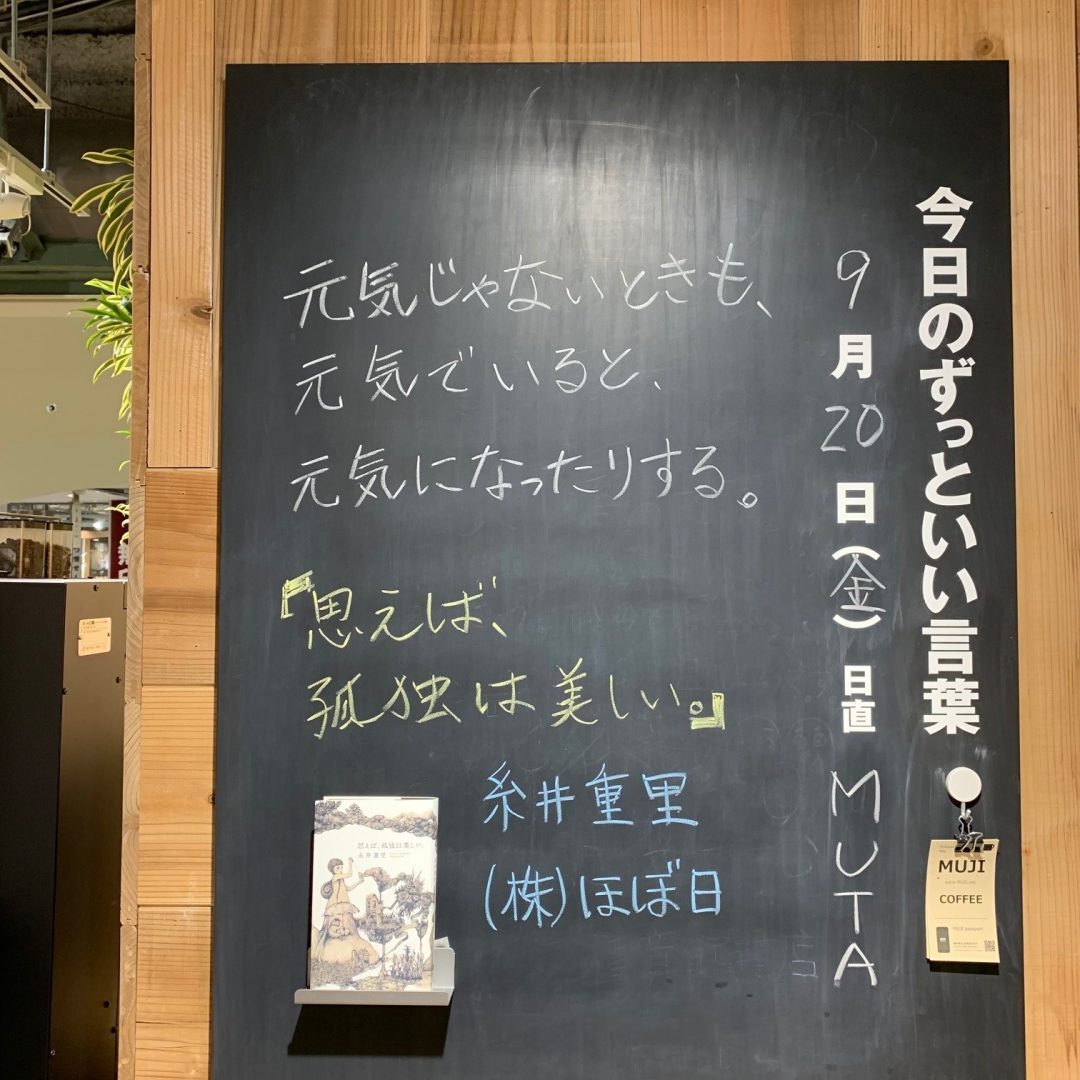 今日のずっといい言葉
9月20日(金) 日直 MUTA
元気じゃないときも、
元気でいると、
元気になったりする。
『思えば、
孤独は美しい。』
糸井重里
(株)ほぼ日
思えば、孤独は美しい。
糸井重里
MUJI
COFFEE
MUJI passport